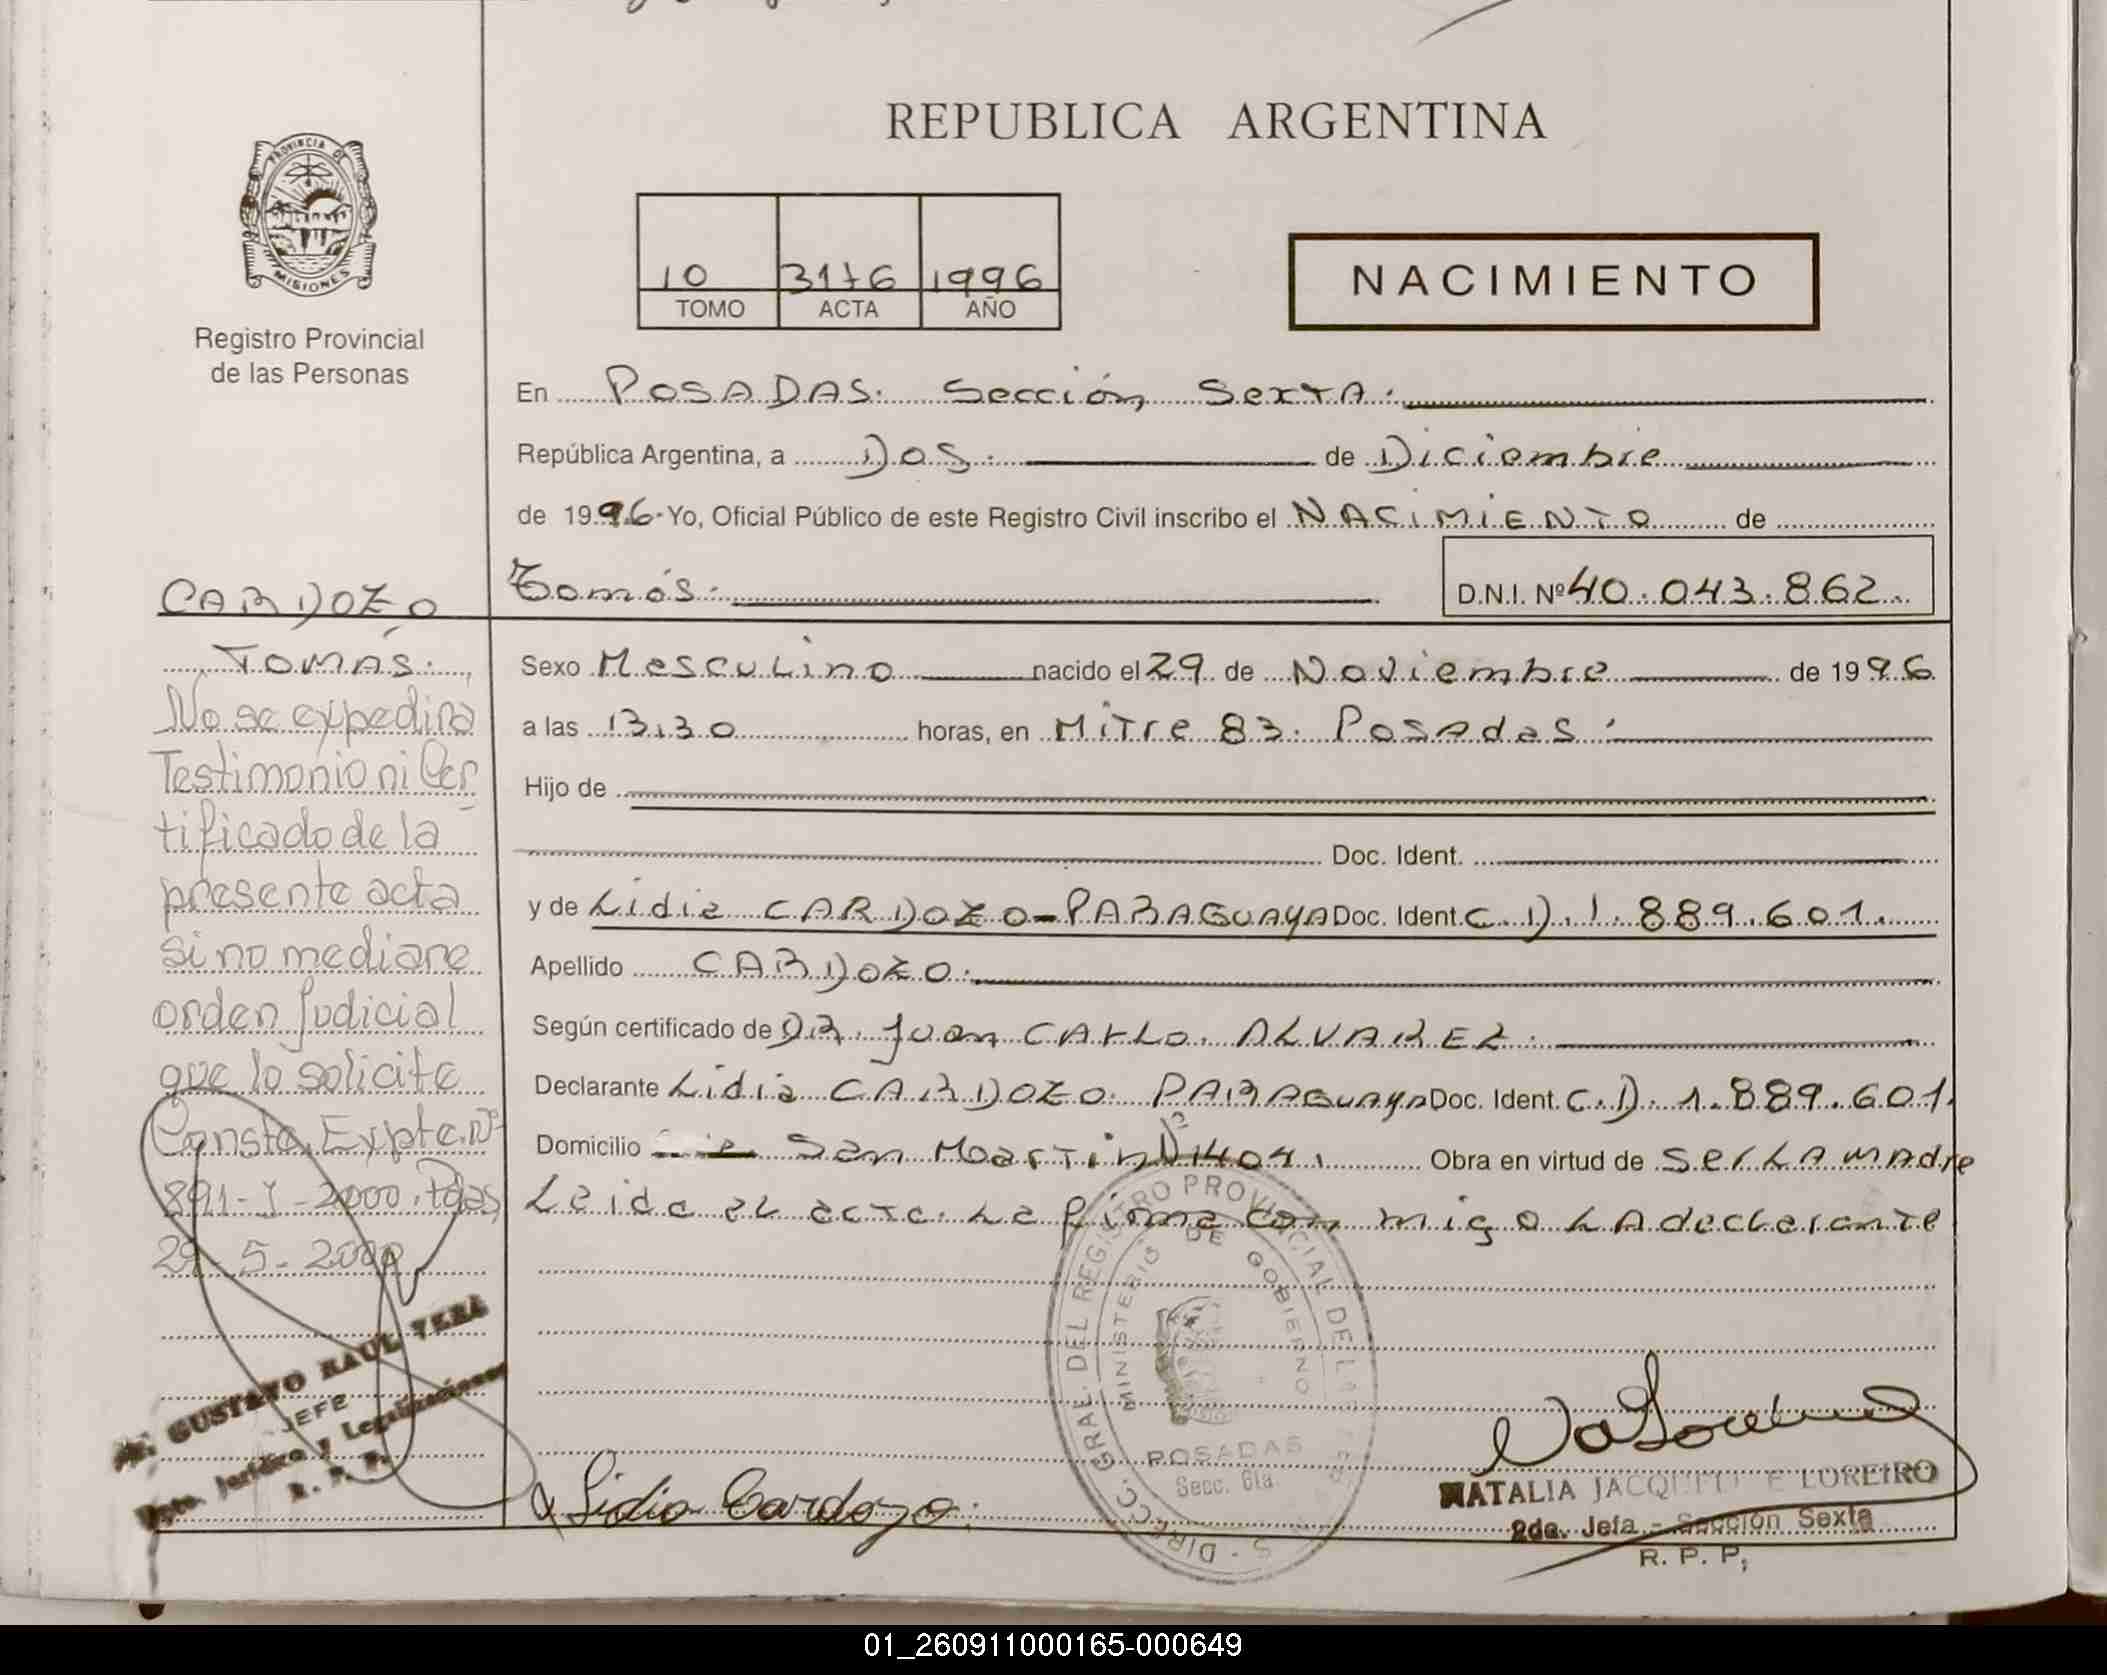 REPUBLICA ARGENTINA
PROVINCIA DE
MISIONES
Registro Provincial
de las Personas
10 3176 1996
TOMO ACTA AÑO
NACIMIENTO
En POSADAS. Sección Sexta.
República Argentina, a Dos. de Diciembre
de 1996. Yo, Oficial Público de este Registro Civil inscribo el NACIMIENTO de
Tomás. D.N.I. Nº 40.043.862
CARDOZO
TOMÁS.
No se expedira
Testimonio ni Cer
tificado de la
presente acta
si no mediare
orden Judicial
que lo solicite
Consta Expte. Nº
891-I-2000. Pdas,
29-5-2000
GUSTAVO RAUL VERA
JEFE
Dpto. Jurídico y Legalizaciones
R. P. P.
Sexo Masculino nacido el 29 de Noviembre de 1996
a las 13:30 horas, en Mitre 83. Posadas.
Hijo de
Doc. Ident.
y de Lidia CARDOZO-PARAGUAYA Doc. Ident. C.D. 1.889.601.
Apellido CARDOZO.
Según certificado de DR. Juan CARLO. ALVAREZ.
Declarante Lidia CARDOZO. PARAGUAYA Doc. Ident. C.D. 1.889.601.
Domicilio San Martin Nº 1404. Obra en virtud de Ser LA MAdre
Leida el acta. La firma con migo LA declarante
DIRECC. GRAL. DEL REGISTRO PROVINCIAL DE LAS PERS
MINISTERIO DE GOBIERNO
POSADAS
Secc. 6ta.
Lidia Cardozo.
NATALIA JACQUELINE LOREIRO
2da. Jefa - Sección Sexta
R. P. P.
01_260911000165-000649